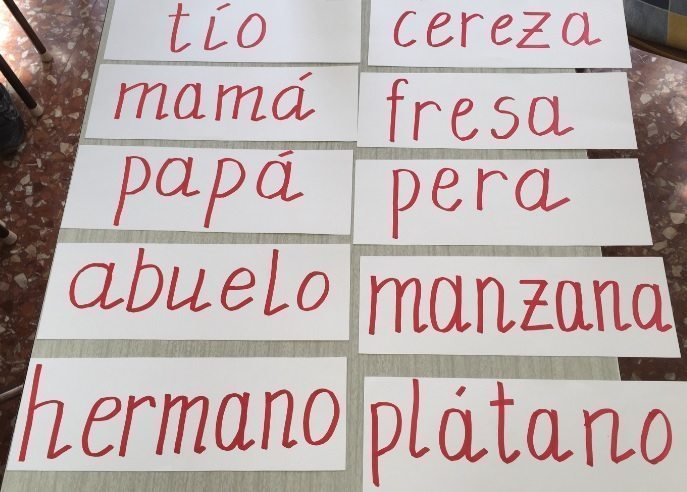 tío
mamá
papá
abuelo
hermano
cereza
fresa
pera
manzana
plátano